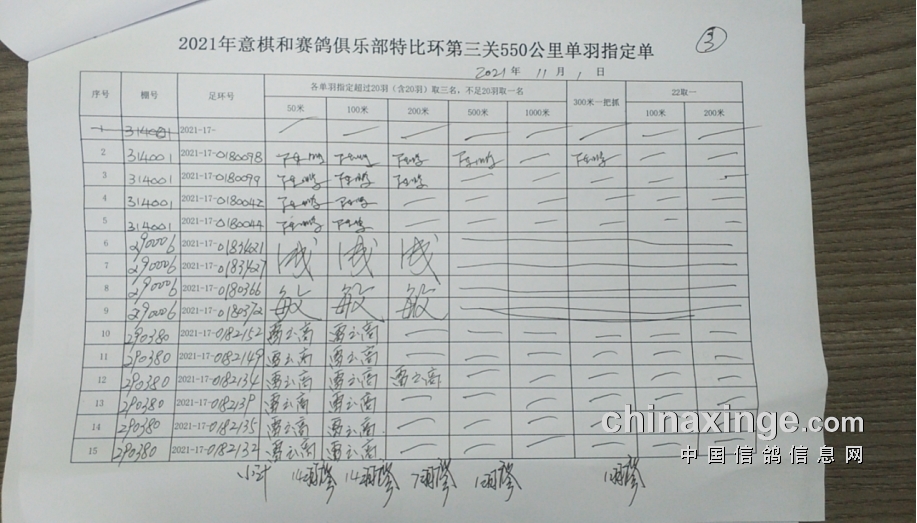 ③
2021年意棋和赛鸽俱乐部特比环第三关550公里单羽指定单
2021 年 11 月 1 日
序号 棚号 足环号 各单羽指定超过20羽（含20羽）取三名，不足20羽取一名 300米一把抓 22取一
50米 100米 200米 500米 1000米 100米 200米
1 314001 2021-17- — — — — — — — —
2 314001 2021-17-0180098 — — —
3 314001 2021-17-0180099 — — — — —
4 314001 2021-17-0180042 — — — — — —
5 314001 2021-17-0180044 — — — — — —
6 290006 2021-17-0183421
7 290006 2021-17-0183427 浅 浅 浅
8 290006 2021-17-0180366
9 290006 2021-17-0180372 敏 敏 敏
10 290380 2021-17-0182152 — — — — — —
11 290380 2021-17-0182149 — — — — — —
12 290380 2021-17-0182134 — — — — —
13 290380 2021-17-0182139 — — — — — —
14 290380 2021-17-0182135 — — — — — —
15 290380 2021-17-0182132 — — — — — —
小计 14羽 14羽 7羽 1羽 1羽
chinaxinge.com
中国信鸽信息网